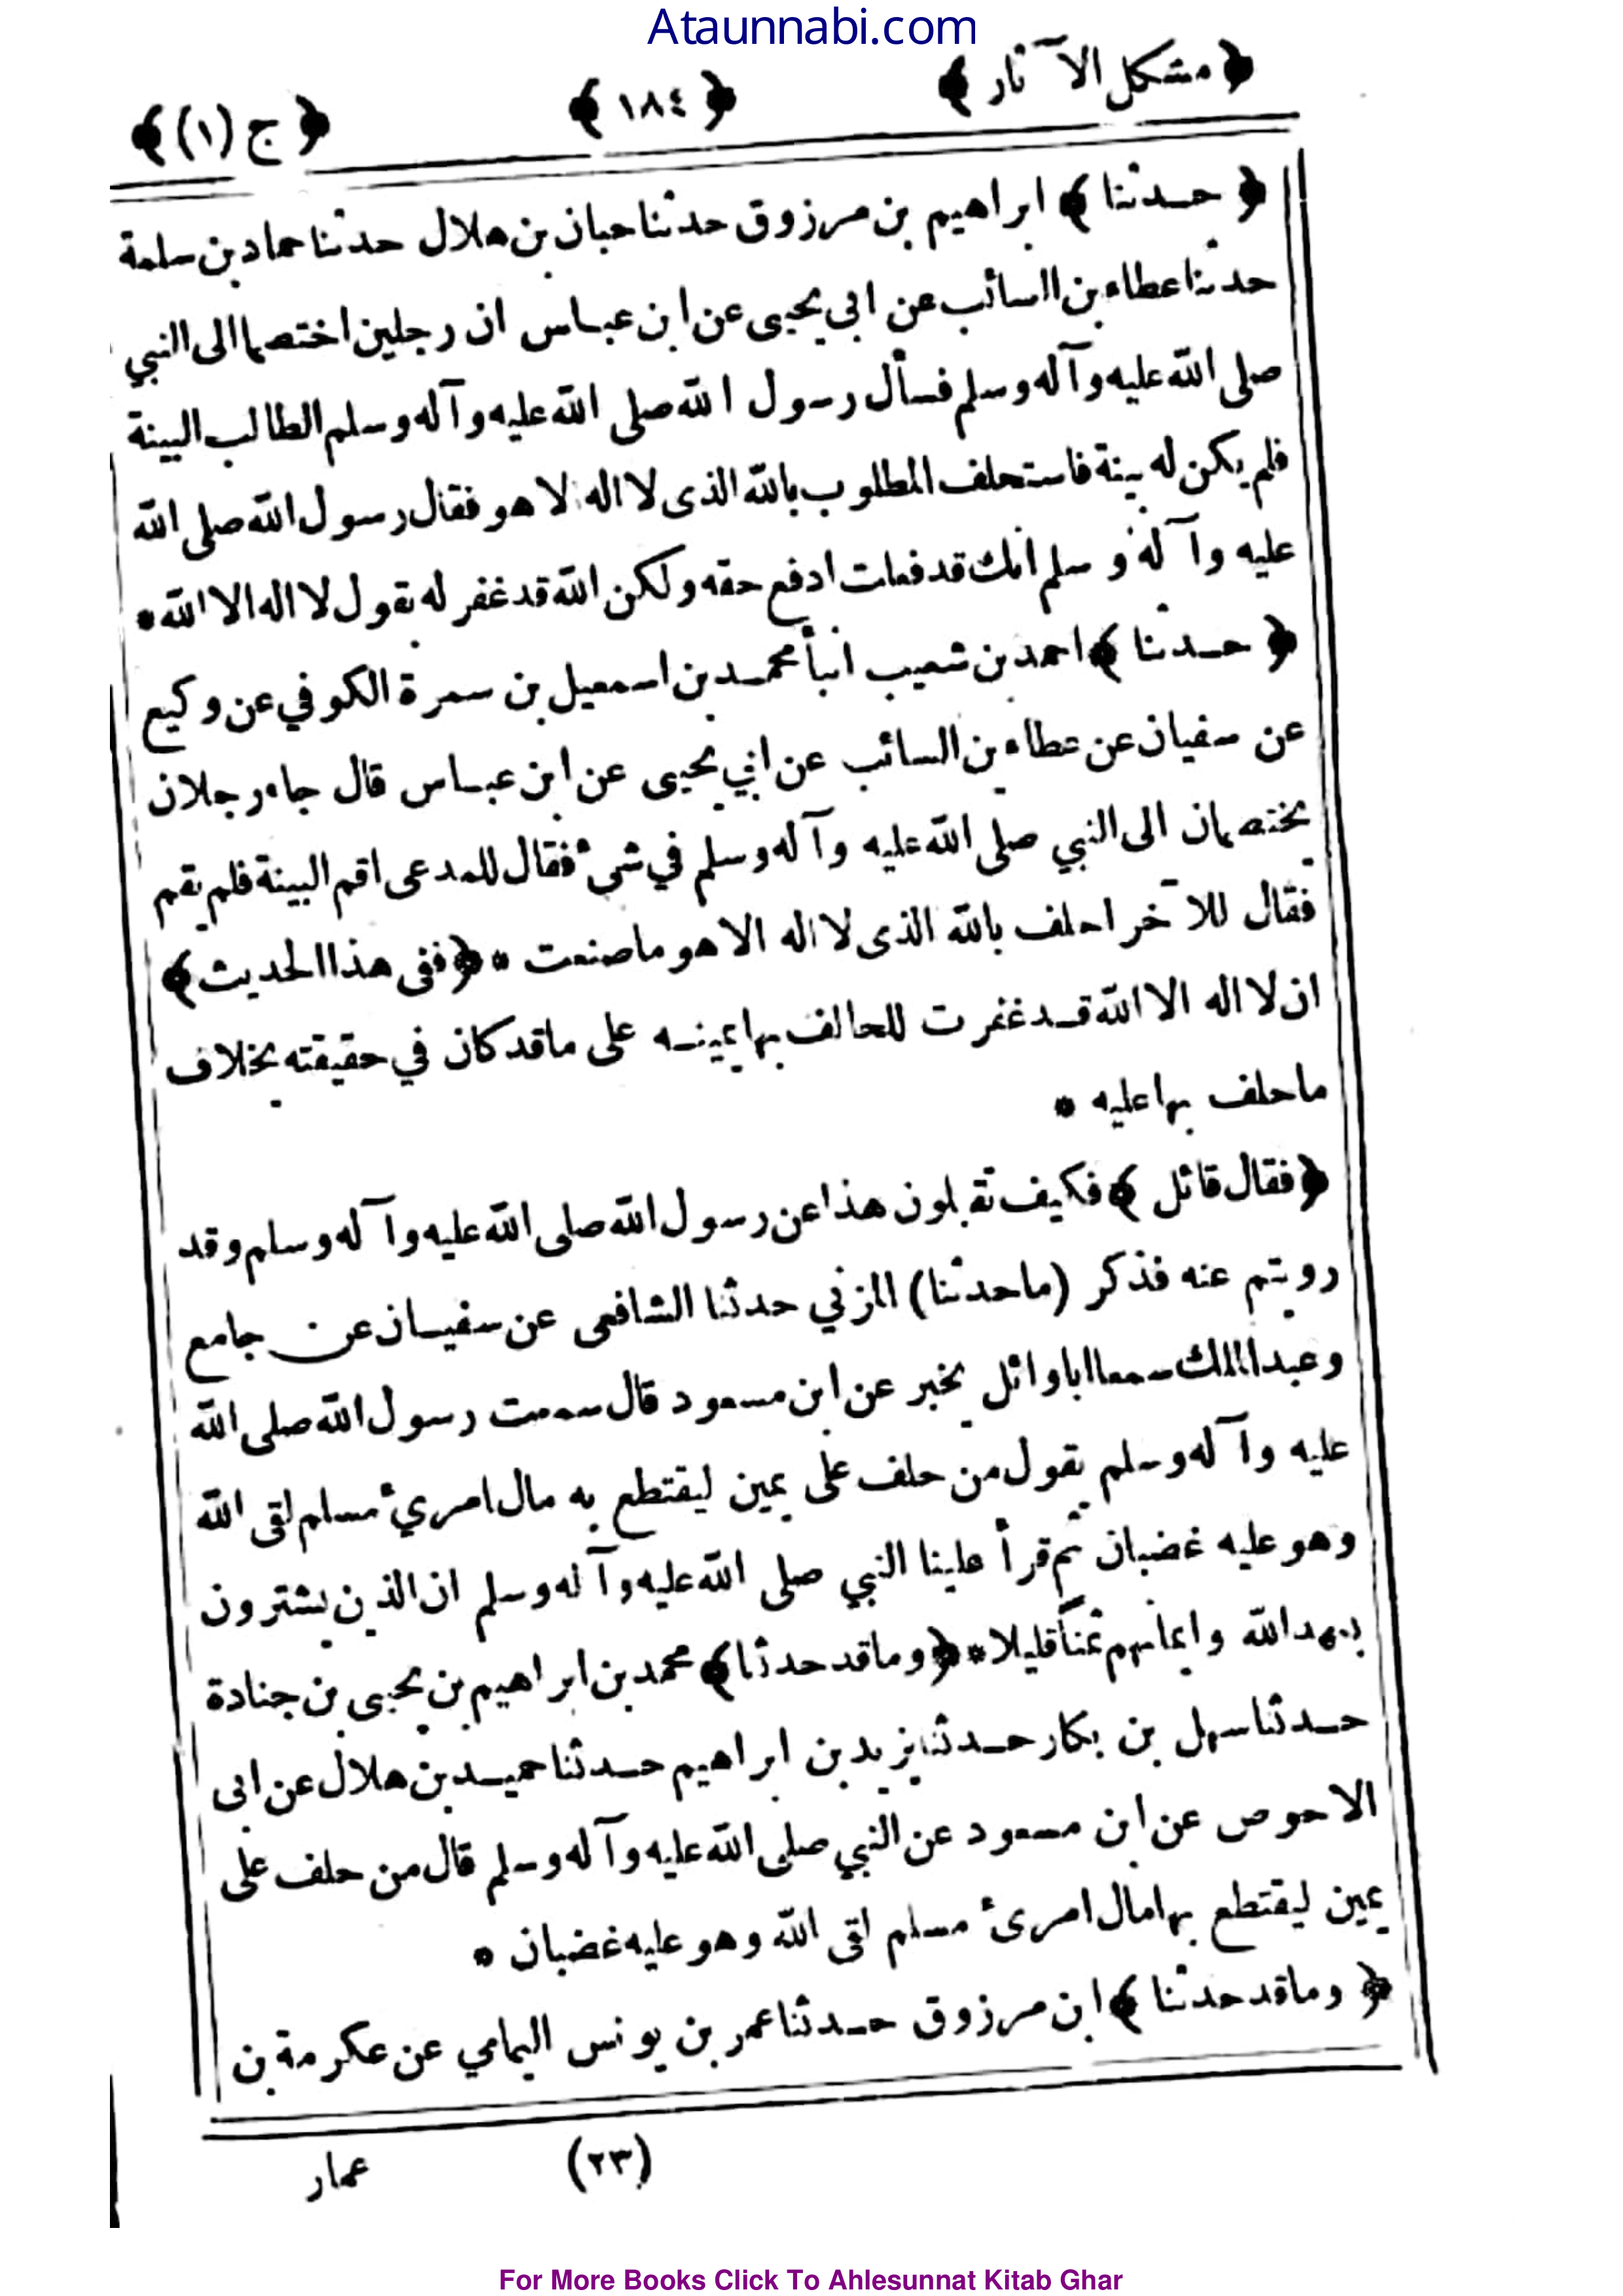 Ataunnabi.com
﴿ مشكل الآثار ﴾ ﴿ ١٨٤ ﴾ ﴿ ج (١) ﴾
﴿ حدثنا ﴾ ابراهيم بن مرزوق حدثنا حبان بن هلال حدثنا حماد بن سلمة
حدثنا عطاء بن السائب عن ابي يحيى عن ابن عباس ان رجلين اختصما الى النبي
صلى الله عليه وآله وسلم فسأل رسول الله صلى الله عليه وآله وسلم الطالب البينة
فلم يكن له بينة فاستحلف المطلوب بالله الذى لا اله الا هو فقال رسول الله صلى الله
عليه وآله وسلم انك قد فعلت ادفع حقه ولكن الله قد غفر له بقول لا اله الا الله *
﴿ حدثنا ﴾ احمد بن شعيب انبأ محمد بن اسمعيل بن سمرة الكوفي عن وكيع
عن سفيان عن عطاء بن السائب عن ابي يحيى عن ابن عباس قال جاء رجلان
يختصمان الى النبي صلى الله عليه وآله وسلم في شئ فقال للمدعى اقم البينة فلم يقم
فقال للآخر احلف بالله الذى لا اله الا هو ما صنعت * ﴿ ففى هذا الحديث ﴾
ان لا اله الا الله قد غفرت للحالف بها يمينه على ما قد كان في حقيقته بخلاف
ما حلف بها عليه *
﴿ فقال قائل ﴾ فكيف تقبلون هذا عن رسول الله صلى الله عليه وآله وسلم وقد
رويتم عنه فذكر (ما حدثنا) المزني حدثنا الشافعى عن سفيان عن جامع
وعبد الملك سمعا ابا وائل يخبر عن ابن مسعود قال سمعت رسول الله صلى الله
عليه وآله وسلم يقول من حلف على يمين ليقتطع به مال امرئ مسلم لقى الله
وهو عليه غضبان ثم قرأ علينا النبي صلى الله عليه وآله وسلم ان الذين يشترون
بعهد الله وايمانهم ثمناً قليلا * ﴿ وما قد حدثنا ﴾ محمد بن ابراهيم بن يحيى بن جنادة
حدثنا سهل بن بكار حدثنا يزيد بن ابراهيم حدثنا حميد بن هلال عن ابى
الاحوص عن ابن مسعود عن النبي صلى الله عليه وآله وسلم قال من حلف على
يمين ليقتطع بها مال امرئ مسلم لقى الله وهو عليه غضبان *
﴿ وما قد حدثنا ﴾ ابن مرزوق حدثنا عمر بن يونس اليمامي عن عكرمة بن
(٢٣) عمار
For More Books Click To Ahlesunnat Kitab Ghar